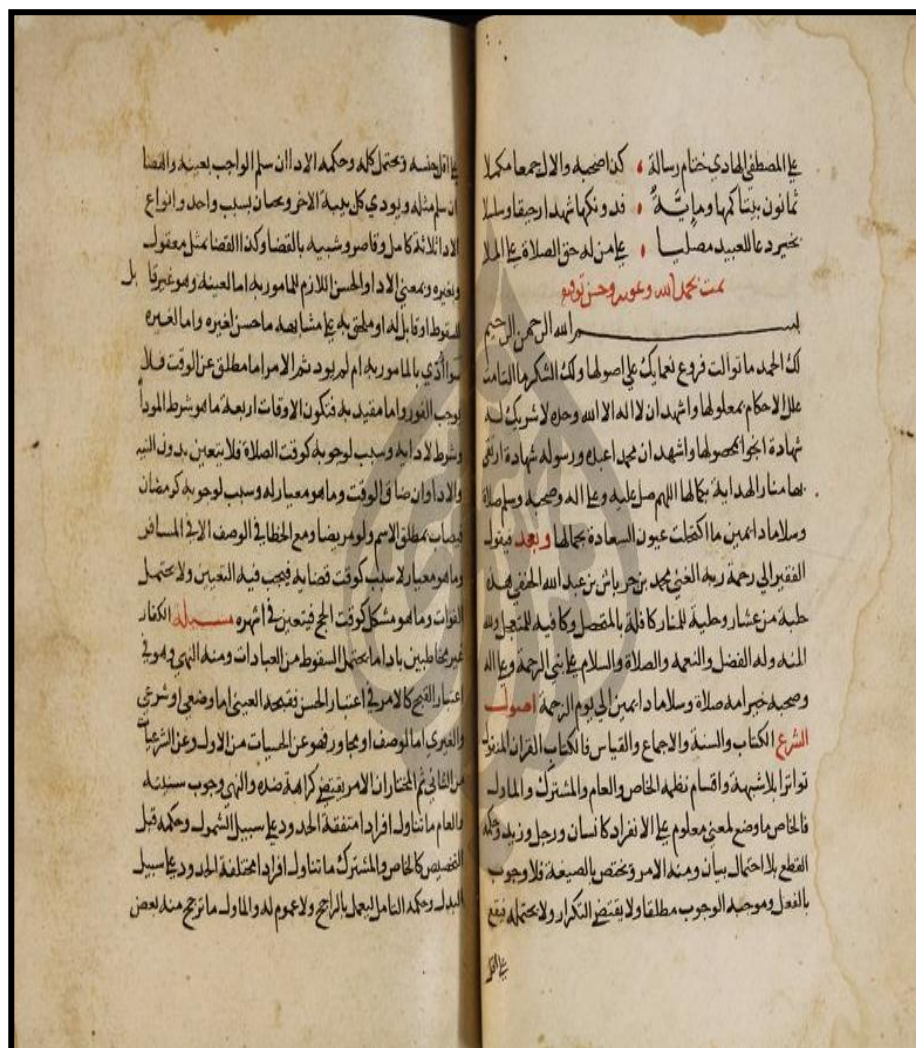 على المصطفى الهادي ختام رسالة • كذا صحبه والال جمعا مكملا
ثمانون بيتا كمها ومايّةٌ • فدونكها شهدا رحيقا وسلسلا
بخير دعا للعبيد مصليا • على من له حق الصلاة على الملا
تمت بحمد الله وعونه وحسن توفيقه
بسم الله الرحمن الرحيم
لك الحمد ما توالت فروع نعمايك على اصولها ولك الشكر ما التامت
علل الاحكام بمعلولها واشهد ان لا اله الا الله وحده لا شريك له
شهادة انجو بحصولها واشهد ان محمدا عبده ورسوله شهادة ارتقى
بها منار الهداية بكمالها اللهم صل عليه وعلى اله وصحبه وسلم صلاة
وسلاما دايمين ما اكتحلت عيون السعادة بجمالها وبعد فيقول
الفقير الي رحمة ربه الغني محمد بن جرباش بن عبد الله الحنفي هذه
من وحلية للمنار كافلة وكافيه ولله
المنه وله الفضل والنعمه والصلاة والسلام على نبي الرحمة وعلى اله
وصحبه خير امه صلاة وسلاما دايمين الي يوم الزحمة اصول
الشرع الكتاب والسنة والاجماع والقياس فالكتاب القران المنقول
تواترا بلا شبهة واقسام نظمه الخاص والعام والمشترك والماول
فالخاص ما وضع لمعنى معلوم على الانفراد كانسان ورجل وزيد وحكمه
القطع بلا احتمال بيان ومنه الامر ويختص بالصيغة فلا وجوب
بالفعل وموجبه الوجوب مطلقا ولا يقتضي التكرار ولا يحتمله فيقع
على اقل
على اقل جنسه ويحتمل كله وحكمه الادا ان سلم الواجب بعينه والقضا
ان سلم مثله ويودي كل بنية الاخر ويجبان بسبب واحد وانواع
الادا ثلاثة كامل وقاصر وشبيه بالقضا وكذا القضا بمثل معقول
وبغيره وبمعنى الادا والحسن اللازم للمامور به اما لعينه وهو غير قابل
للسقوط او قابل له او ملحق به على مشابهه ما حسن لغيره واما لغيره
سوا أُدّي بالمامور به ام لم يود ثم الامر اما مطلق عن الوقت فلا
يوجب الفور واما مقيد به فتكون الاوقات اربعة ما هو شرط المودأ
وشرط لادايه وسبب لوجوبه كوقت الصلاة فلا يتعين بدون النيه
والادا وان ضاق الوقت وما هو معيار له وسبب لوجوبه كرمضان
فيصاب بمطلق الاسم ولو مريضا ومع الخطا في الوصف الا في المسافر
وما هو معيار لا سبب كوقت قضايه فيجب فيه التعيين ولا يحتمل
الفوات وما هو مشكل كوقت الحج فيتعين في اشهره مسيلة الكفار
غير مخاطبين بادا ما يحتمل السقوط من العبادات ومنه النهي وهو في
اعتبار القبح كالامر في اعتبار الحسن فقبحه لعينه اما وضعي او شرعي
والغيري اما لوصف او مجاور فهو عن الحسيات من الاول وعن الشرعيات
من الثاني ثم المختار ان الامر يقتضي كراهة ضده والنهي وجوب سنيته
والعام ما تناول افرادا متفقة الحدود على سبيل الشمول وحكمه قبل
التخصيص كالخاص والمشترك ما تناول افرادا مختلفة الحدود على سبيل
البدل وحكمه التامل ليعمل بالراجح ولا عموم له والماول ما ترجح منه بعض